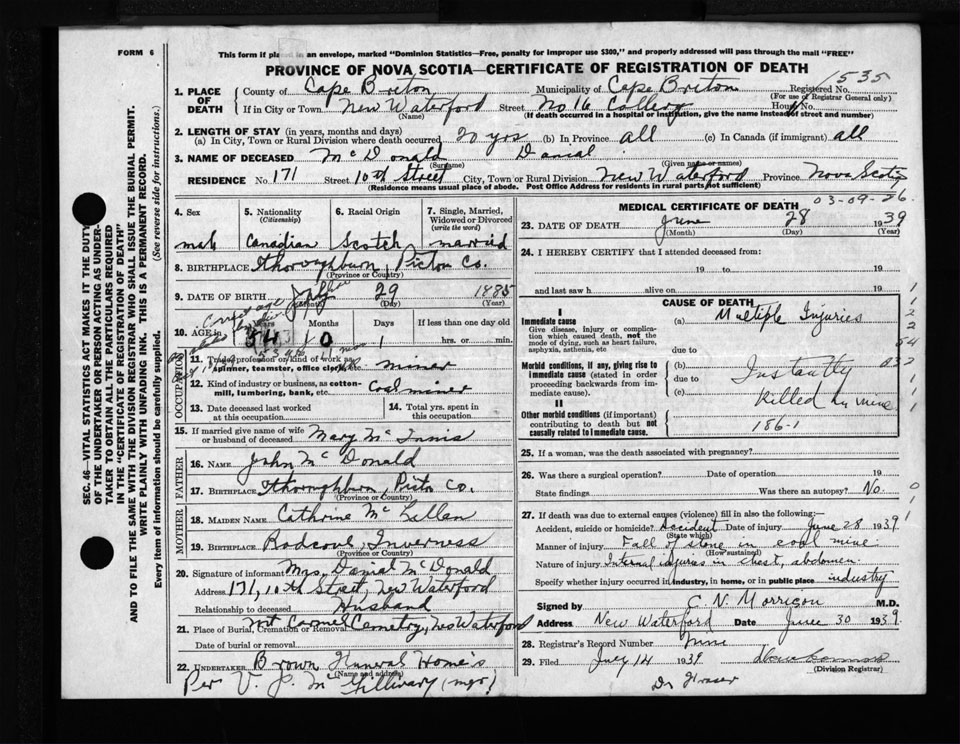 FORM 6
This form if placed in an envelope, marked "Dominion Statistics—Free, penalty for improper use $300," and properly addressed will pass through the mail "FREE"
PROVINCE OF NOVA SCOTIA—CERTIFICATE OF REGISTRATION OF DEATH
1535
1. PLACE OF DEATH County of Cape Breton Municipality of Cape Breton Registered No.
(For use of Registrar General only)
If in City or Town New Waterford Street No 16 Collery House No.
(Name) (If death occurred in a hospital or institution, give the name instead of street and number)
2. LENGTH OF STAY (in years, months and days)
(a) In City, Town or Rural Division where death occurred 20 yrs (b) In Province all (c) In Canada (if immigrant) all
3. NAME OF DECEASED McDonald Danial
(Surname) (Given name or names)
RESIDENCE No. 171 Street 10th Street City, Town or Rural Division New Waterford Province Nova Scotia
(Residence means usual place of abode. Post Office Address for residents in rural parts not sufficient)
03-09-26.
4. Sex male
5. Nationality (Citizenship) Canadian
6. Racial Origin Scotch
7. Single, Married, Widowed or Divorced (write the word) married
8. BIRTHPLACE Thornghburn, Picton Co.
(Province or Country)
9. DATE OF BIRTH July 29 1885
(Month) (Day) (Year)
10. AGE in Years Months Days If less than one day old
54 10 1 hrs. or min.
11. Trade, profession or kind of work as spinner, teamster, office clerk, etc. miner
12. Kind of industry or business, as cotton-mill, lumbering, bank, etc. Coal miner
OCCUPATION
13. Date deceased last worked at this occupation
14. Total yrs. spent in this occupation
15. If married give name of wife or husband of deceased Mary McInnis
FATHER
16. NAME John McDonald
17. BIRTHPLACE Thornghburn, Picton Co.
(Province or Country)
MOTHER
18. MAIDEN NAME Cathrine McLellan
19. BIRTHPLACE Inverness
(Province or Country)
20. Signature of informant Mrs. Danial McDonald
Address 171, 10th Street, New Waterford
Relationship to deceased Husband
21. Place of Burial, Cremation or Removal Mt Carmel Cemetry, New Waterford
Date of burial or removal
22. UNDERTAKER Brown Funeral Home's
(Name and address)
Per V. J. McGillivary (mgr)
MEDICAL CERTIFICATE OF DEATH
23. DATE OF DEATH June 28 1939
(Month) (Day) (Year)
24. I HEREBY CERTIFY that I attended deceased from:
19 to 19
and last saw h alive on 19
CAUSE OF DEATH
I
Immediate cause
Give disease, injury or complication which caused death, not the mode of dying, such as heart failure, asphyxia, asthenia, etc
(a) Multiple Injuries
due to
Morbid conditions, if any, giving rise to immediate cause (stated in order proceeding backwards from immediate cause).
(b) Instantly
due to
(c) Killed in mine
II
Other morbid conditions (if important) contributing to death but not causally related to immediate cause.
186-1
25. If a woman, was the death associated with pregnancy?
26. Was there a surgical operation? Date of operation 19
State findings Was there an autopsy? No.
27. If death was due to external causes (violence) fill in also the following:—
Accident, suicide or homicide? Accident Date of injury June 28 1939
(State which)
Manner of injury Fall of stone in coal mine
(How sustained)
Nature of injury Internal injuries in chest, abdomen
Specify whether injury occurred in industry, in home, or in public place industry
Signed by C. N. Morrison M.D.
Address New Waterford Date June 30 1939.
28. Registrar's Record Number
29. Filed July 14 1939
(Division Registrar)
Dr Fraser
SEC. 46—VITAL STATISTICS ACT MAKES IT THE DUTY OF THE UNDERTAKER OR PERSON ACTING AS UNDERTAKER TO OBTAIN ALL THE PARTICULARS REQUIRED IN THE "CERTIFICATE OF REGISTRATION OF DEATH"
AND TO FILE THE SAME WITH THE DIVISION REGISTRAR WHO SHALL ISSUE THE BURIAL PERMIT.
WRITE PLAINLY WITH UNFADING INK. THIS IS A PERMANENT RECORD.
Every item of information should be carefully supplied. (See reverse side for instructions.)